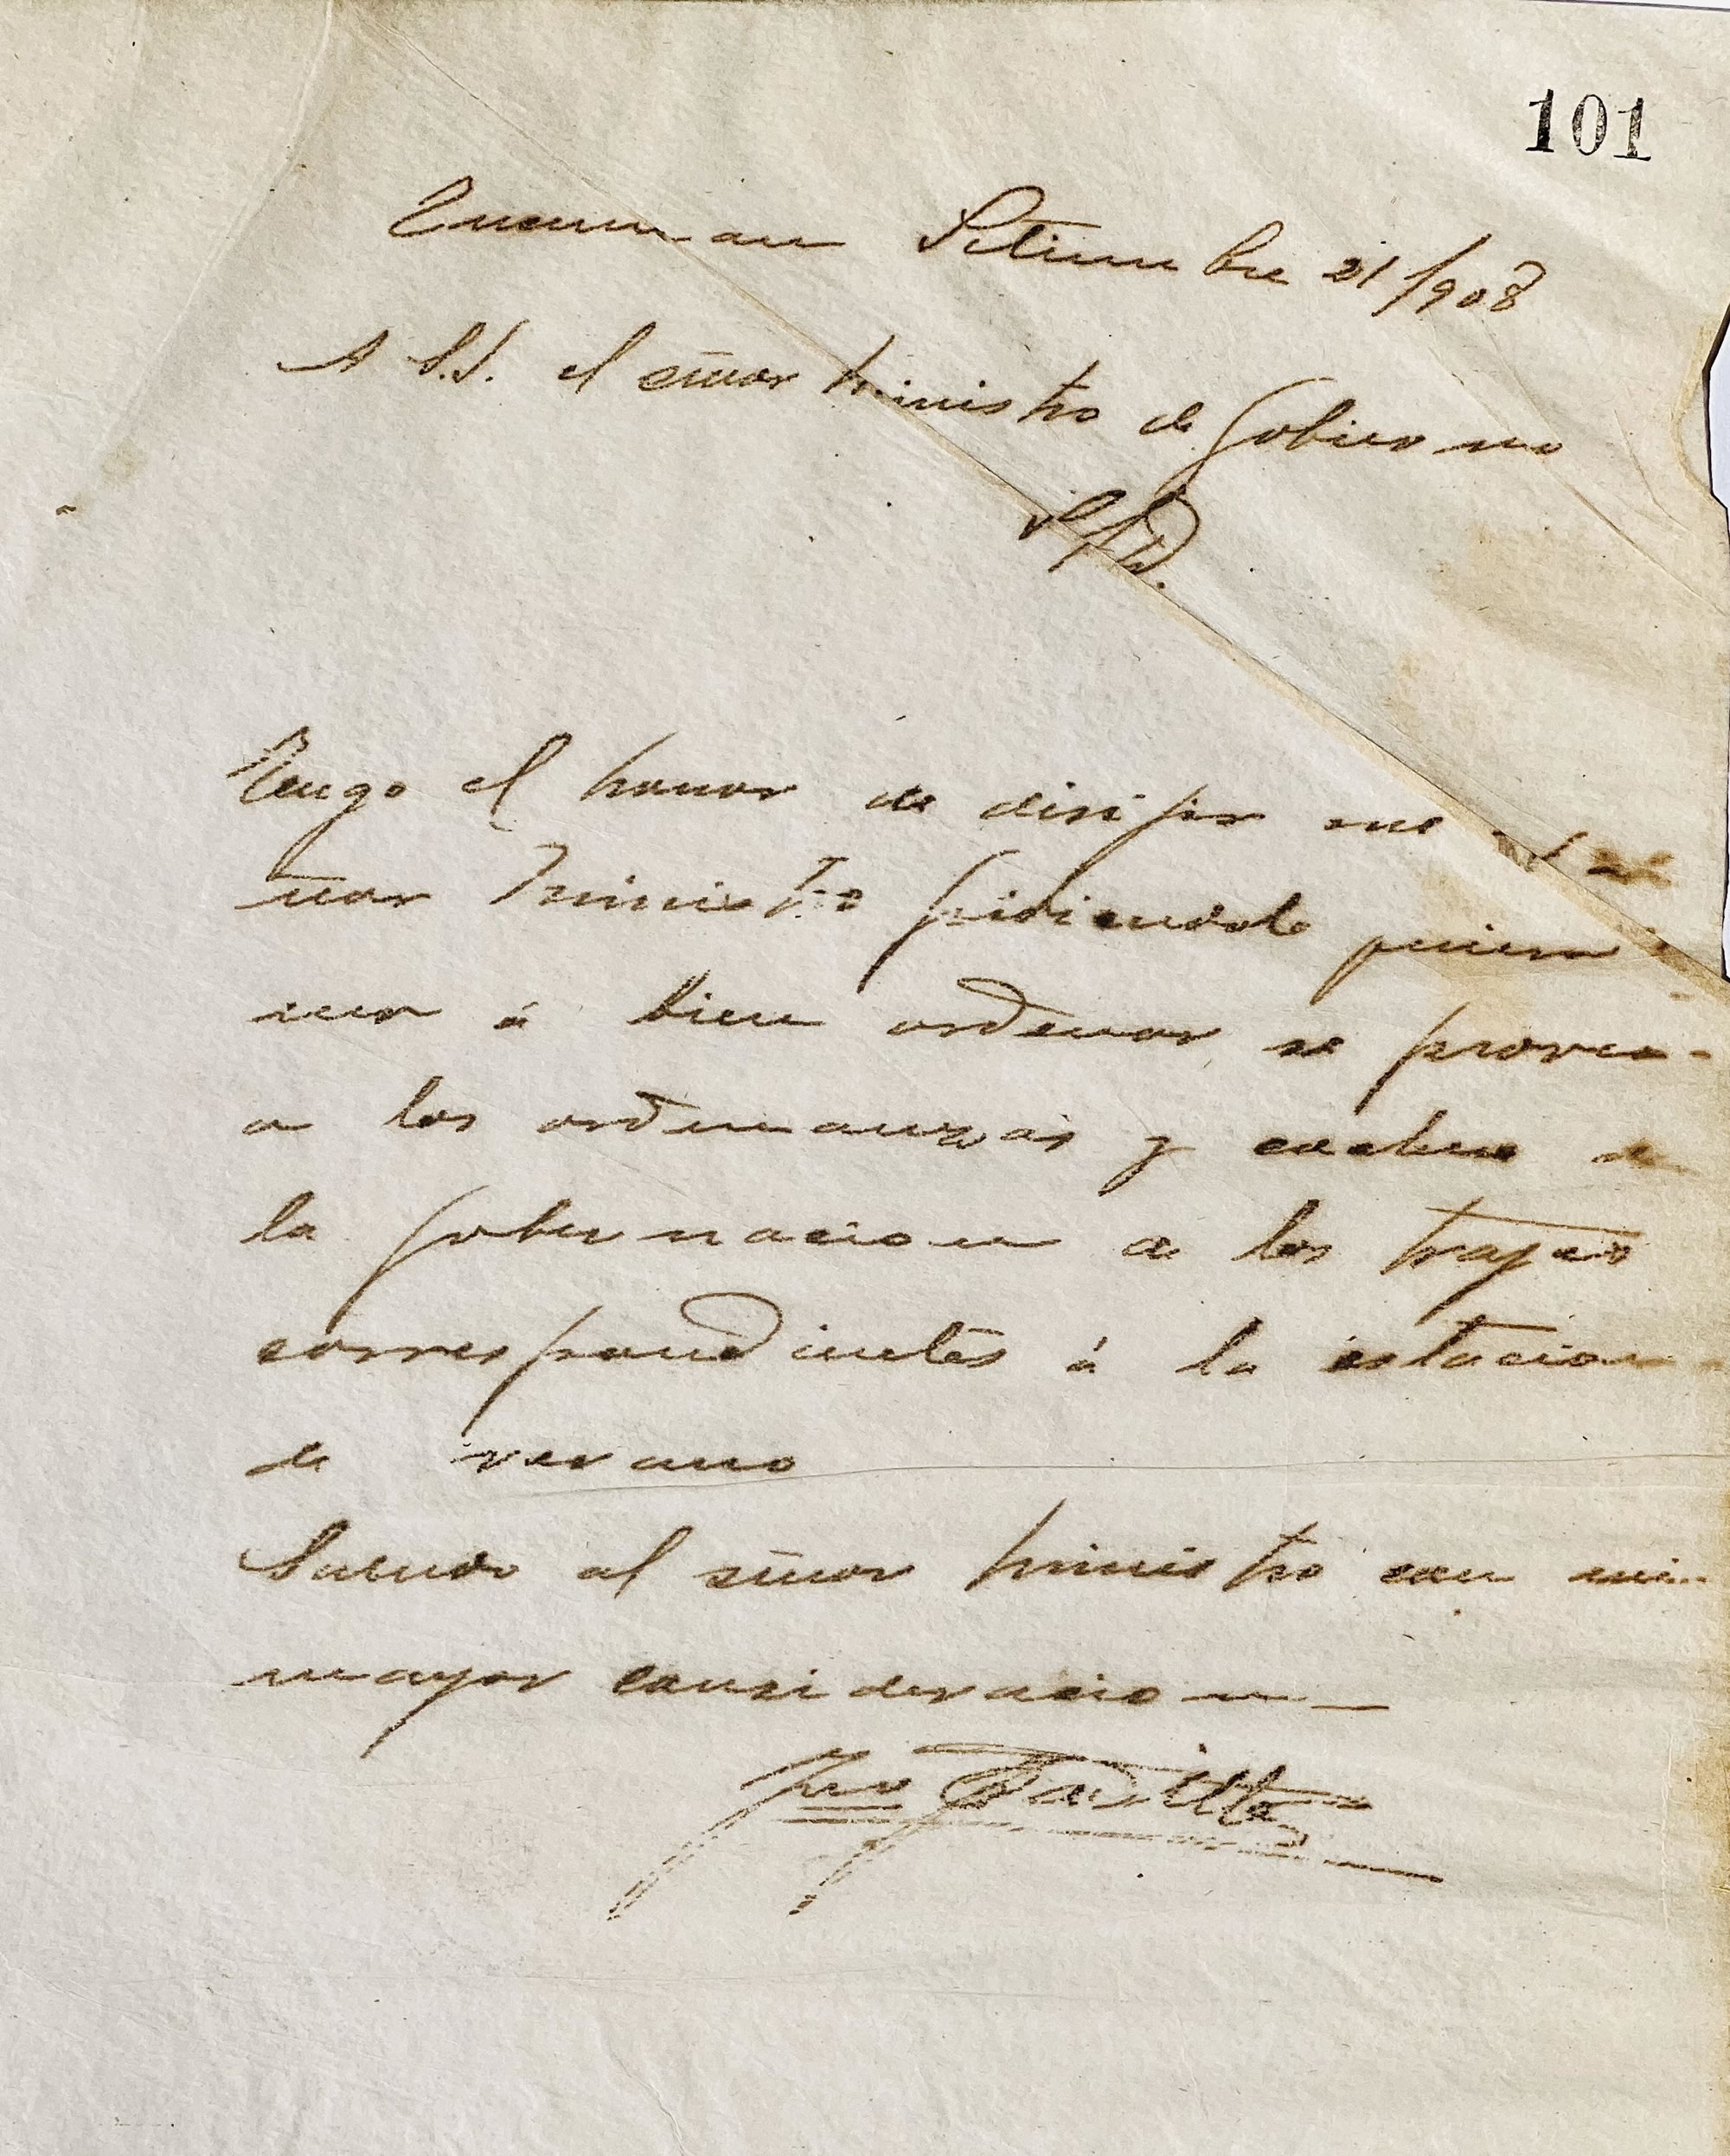 101
Tucuman Setiembre 21/908
A S.S. el señor Ministro de Gobierno
S/D.
Tengo el honor de dirijirme al se
ñor Ministro pidiendole quiera
a bien ordenar se provea
a los ordenanzas y cochero de
la gobernacion de los trajes
correspondientes á la estacion
de verano
Saludo al señor Ministro con mi
mayor consideracion